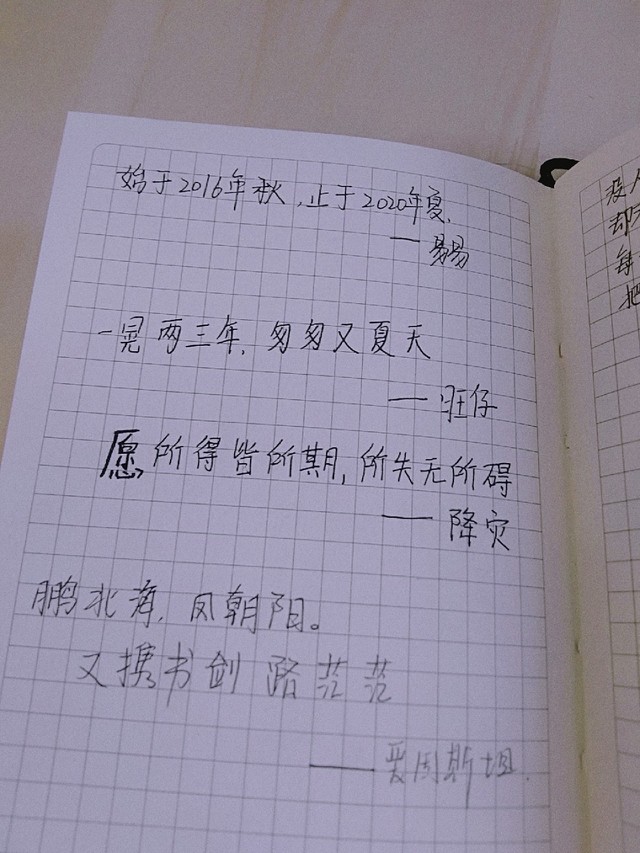 始于2016年秋,止于2020年夏.
—易易
一晃两三年,匆匆又夏天
—旺仔
愿所得皆所期,所失无所碍
—降灾
鹏北海,凤朝阳。
又携书剑路茫茫
—爱因斯坦.
没
却
每
把